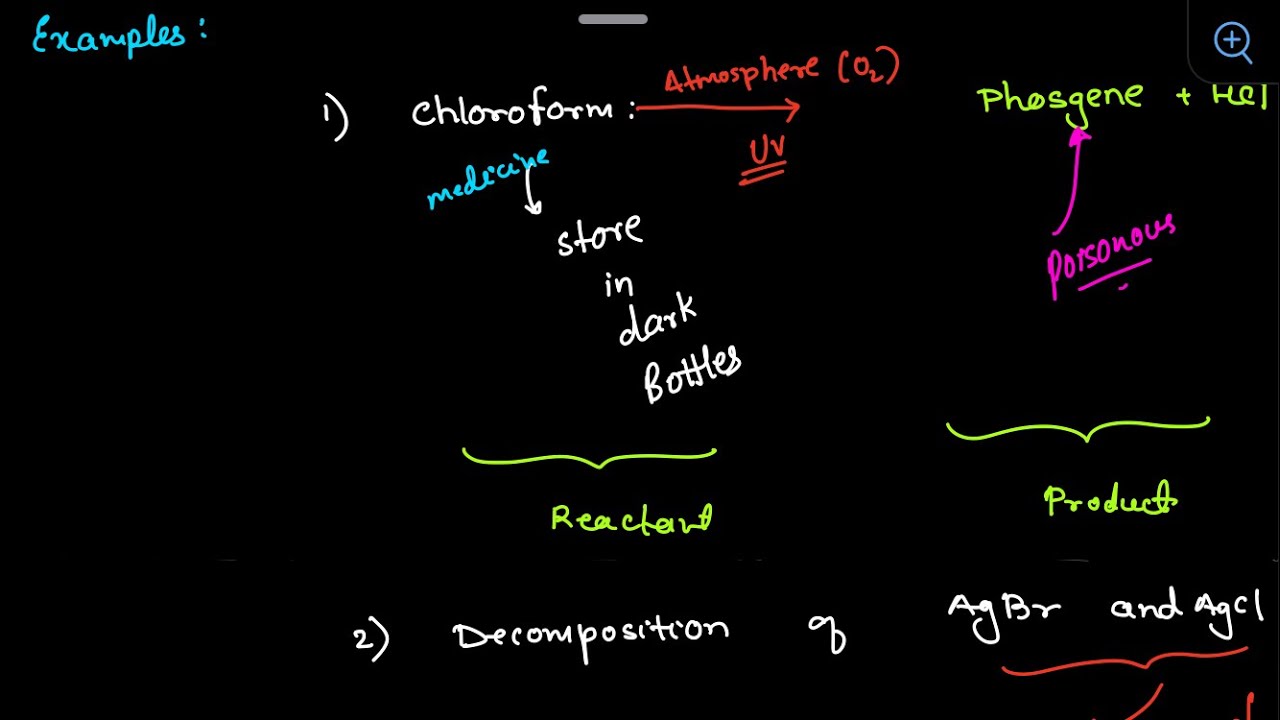 Examples:
Atmosphere (O₂)
1) Chloroform: Phosgene + HCl
UV
medicine
store
in
dark
Bottles
Poisonous
Reactant Product
2) Decomposition of AgBr and AgCl